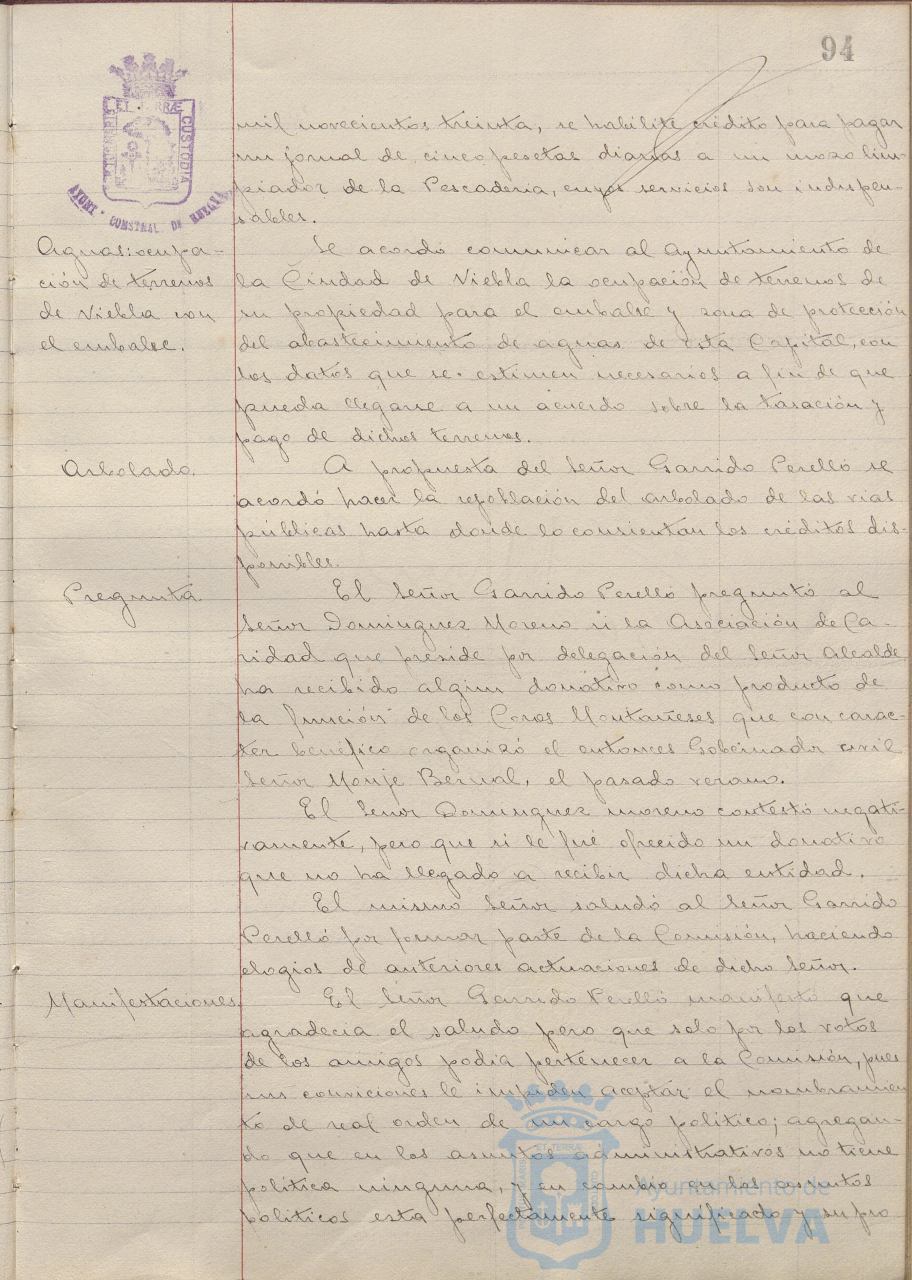 94
PORTUS MARIS ET TERRÆ CUSTODIA
AYUNT. CONSTNAL DE HUELVA
mil novecientos treinta, se habilite crédito para pagar
un jornal de cinco pesetas diarias a un mozo lim-
piador de la Pescaderia, cuyos servicios son indispen-
sables.
Aguas: ocupa-
ción de terrenos
de Niebla con
el embalse.
Se acordó comunicar al Ayuntamiento de
la Ciudad de Niebla la ocupación de terrenos de
su propiedad para el embalse y zona de protección
del abastecimiento de aguas de esta Capital, con
los datos que se estimen necesarios a fin de que
pueda llegarse a un acuerdo sobre la tasación y
pago de dichos terrenos.
Arbolado.
A propuesta del Señor Garrido Perelló se
acordó hacer la repoblación del arbolado de las vias
públicas hasta donde lo consientan los créditos dis-
ponibles.
Pregunta.
El Señor Garrido Perelló preguntó al
Señor Dominguez Moreno si la Asociación de Ca-
ridad que preside por delegación del Señor Alcalde
ha recibido algun donativo como producto de
la función de los Coros Montañeses que con carac-
ter benéfico organizó el entonces Gobernador civil
Señor Monje Bernal, el pasado verano.
El Señor Dominguez Moreno contestó negati-
vamente, pero que si le fué ofrecido un donativo
que no ha llegado a recibir dicha entidad.
El mismo Señor saludó al Señor Garrido
Perelló por formar parte de la Comisión, haciendo
elogios de anteriores actuaciones de dicho Señor.
Manifestaciones.
El Señor Garrido Perelló manifestó que
agradecia el saludo pero que solo por los votos
de los amigos podia pertenecer a la Comisión, pues
sus conviciones le impiden aceptar el nombramien
to de real orden de un cargo politico; agregan-
do que en los asuntos administrativos no tiene
politica ninguna, y en cambio en los asuntos
politicos esta perfectamente significado y su pro
Ayuntamiento de
HUELVA